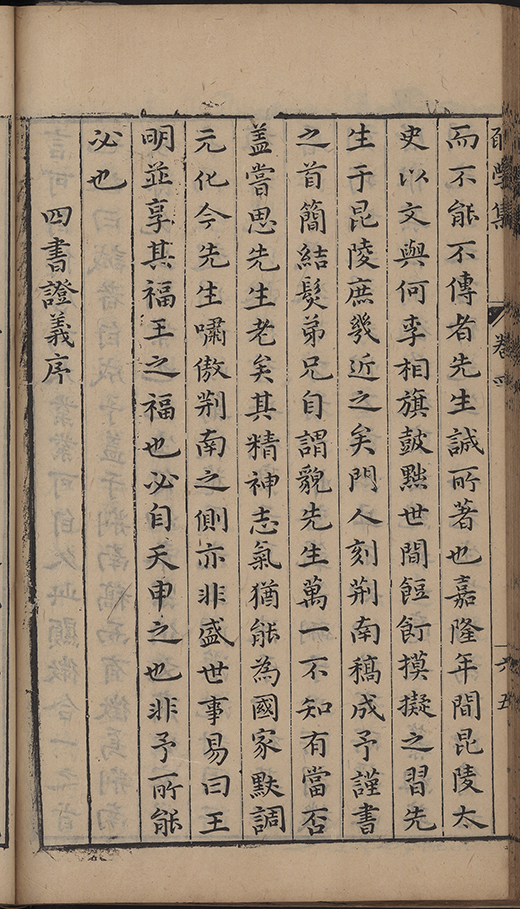 學集 卷四 六五
而不能不傳者先生誠所著也嘉隆年間昆陵太
史以文與何李相旗鼓黜世間餖飣摸擬之習先
生于昆陵庶幾近之矣門人刻荆南稿成予謹書
之首簡結髮弟兄自謂貌先生萬一不知有當否
盖嘗思先生老矣其精神志氣猶能為國家默調
元化今先生嘯傲荆南之側亦非盛世事易曰王
明並享其福王之福也必自天申之也非予所能
必也
四書證義序